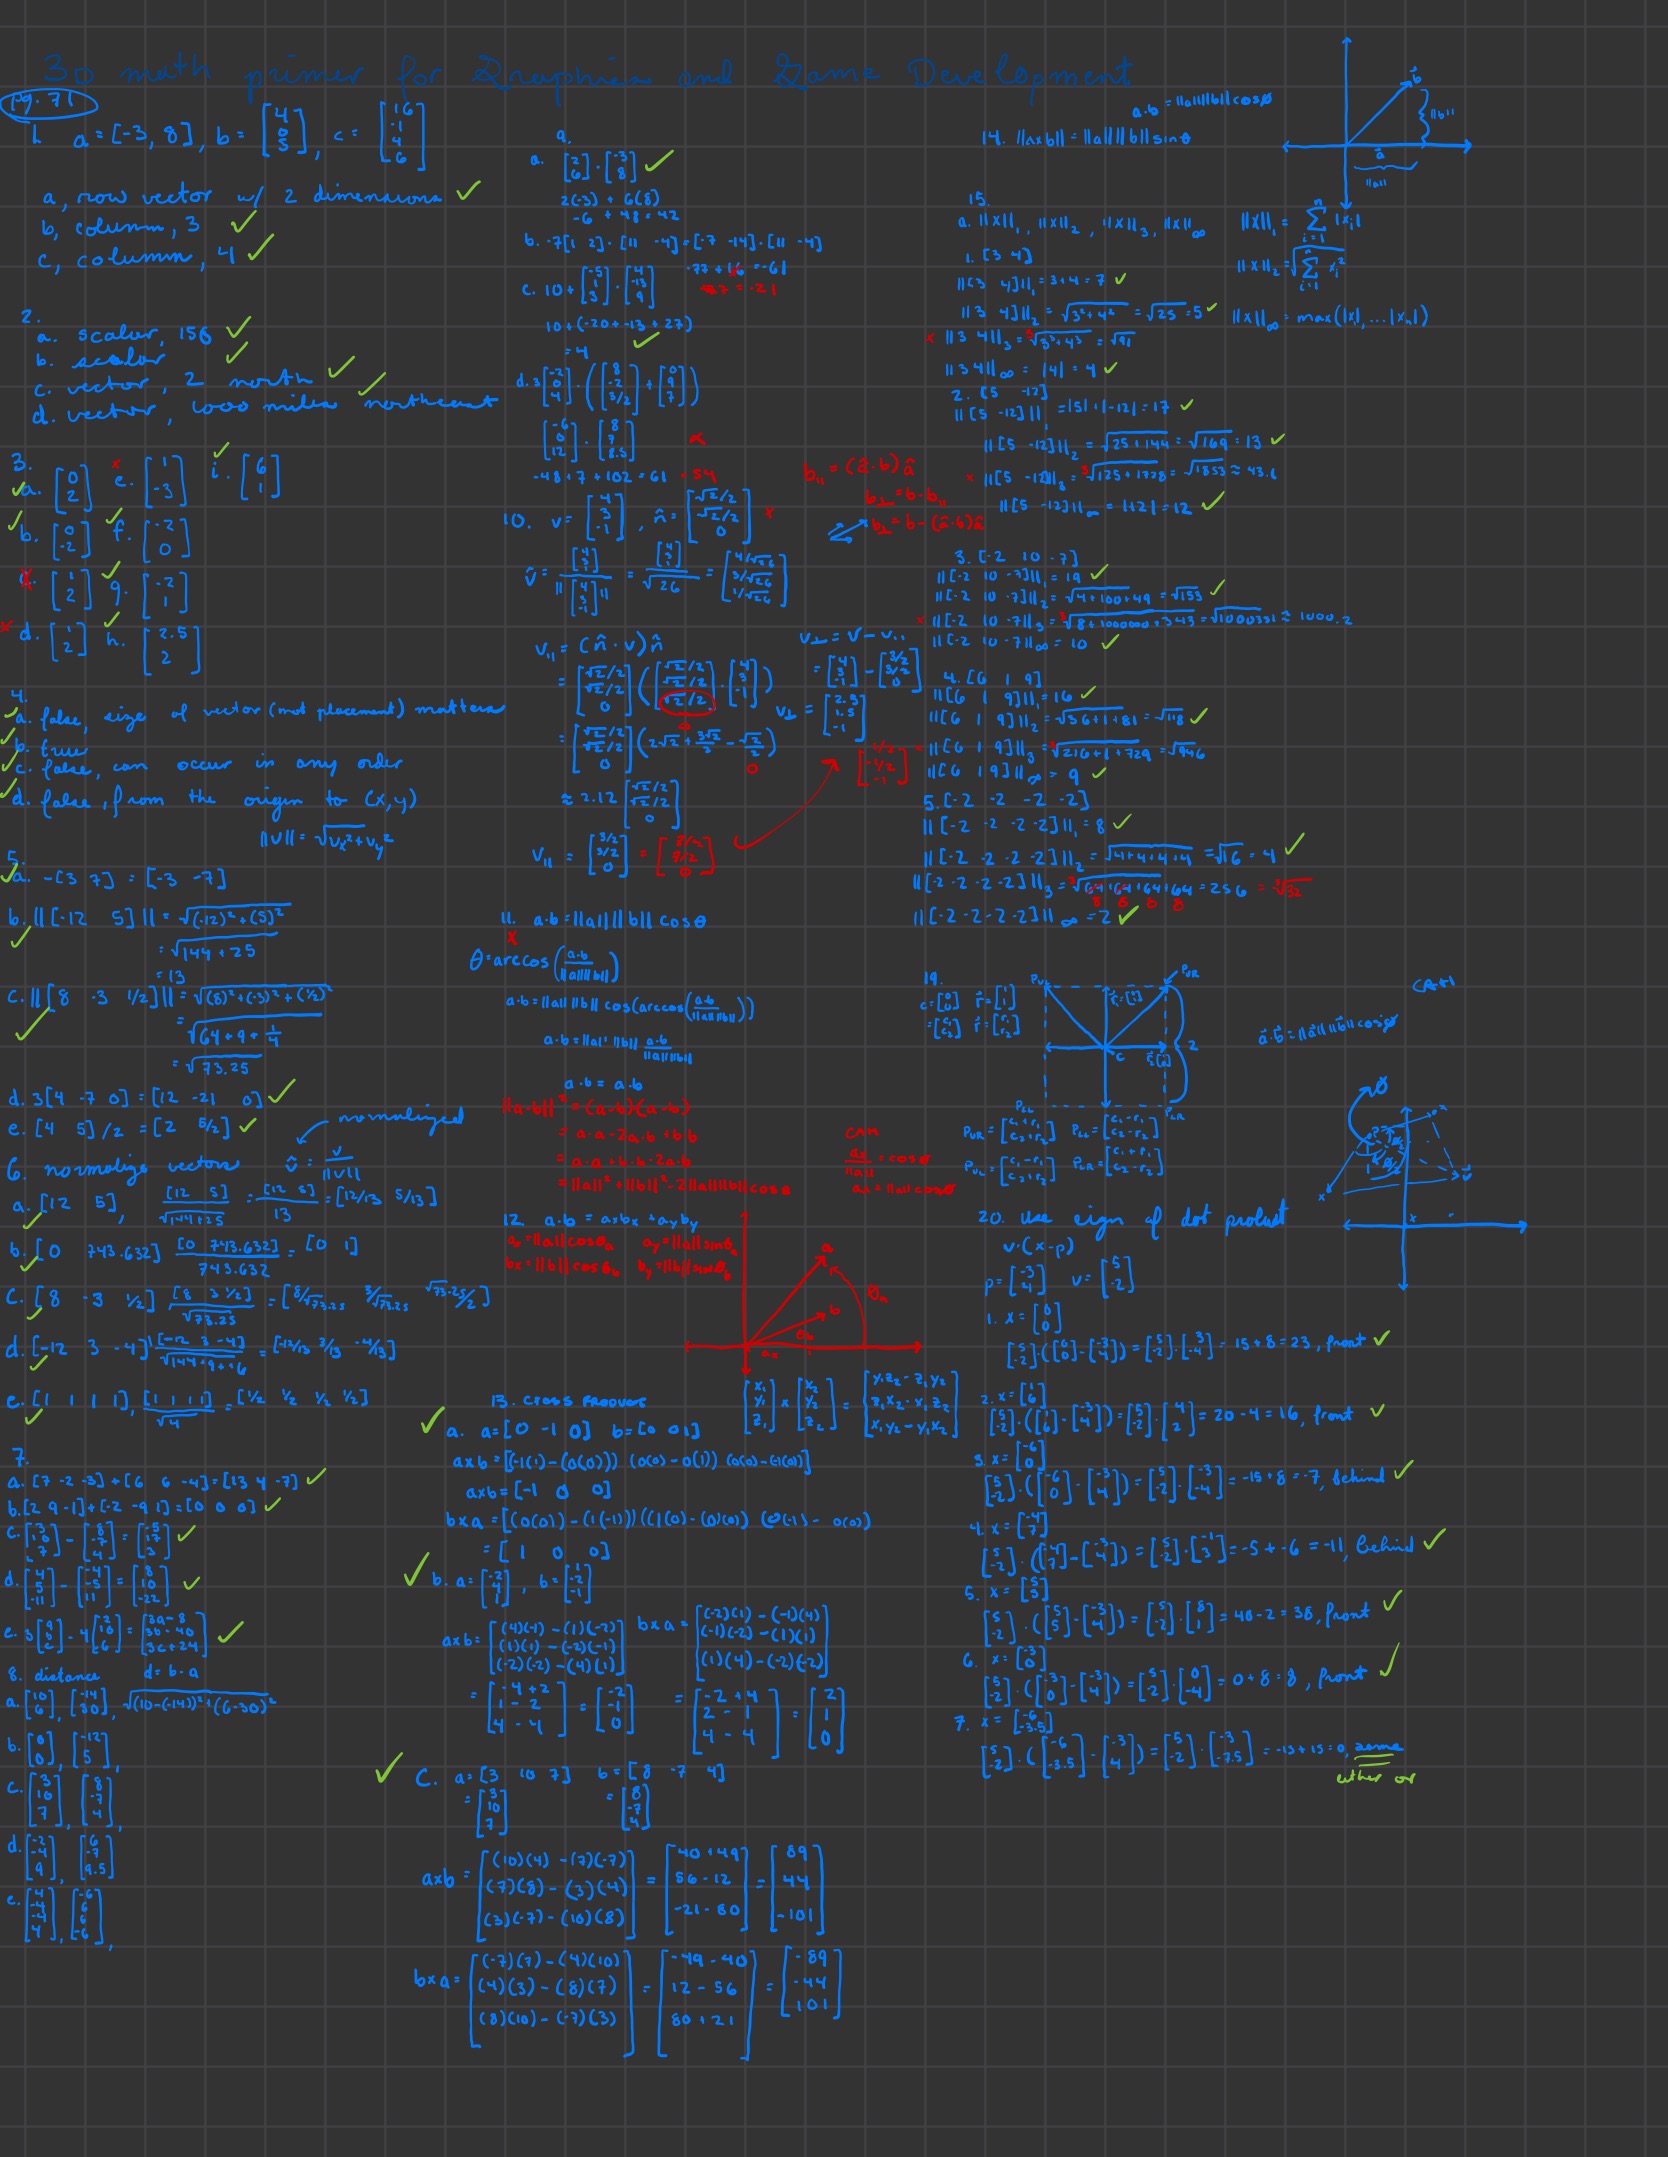 3D math primer for Graphics and Game Development
pg. 71
1. a = [-3, 8], b = [4 0 5], c = [16 -1 4 6]
a, row vector w/ 2 dimensions ✓
b, column, 3 ✓
c, column, 4 ✓
2.
a. scalar, 156 ✓
b. scalar ✓
c. vector, 2 north ✓
d. vector, 1000 miles northeast ✓
3.
a. [0 2] e. [1 -3] i. [6 1]
b. [0 -2] f. [-2 0]
[1 2] g. [-2 1]
d. [1 2] h. [2.5 2]
4.
a. false, size of vector (not placement) matters
b. true
c. false, can occur in any order
d. false, from the origin to (x,y)
||v|| = √vx²+vy²
5.
a. -[3 7] = [-3 -7]
b. ||[-12 5]|| = √(-12)²+(5)²
= √144+25
= 13
c. ||[8 -3 1/2]|| = √(8)²+(-3)²+(1/2)²
= √64+9+1/4
= √73.25
d. 3[4 -7 0] = [12 -21 0] ✓
e. [4 5]/2 = [2 5/2] ✓
normalized
6. normalize vectors v̂ = v/||v||
a. [12 5], [12 5]/√144+25 = [12 5]/13 = [12/13 5/13]
b. [0 743.632] [0 743.632]/743.632 = [0 1]
c. [8 -3 1/2] [8 3 1/2]/√73.25 = [8/√73.25 3/√73.25 √73.25/2]
d. [-12 3 -4] [-12 3 -4]/√144+9+16 = [-12/13 3/13 -4/13]
e. [1 1 1 1], [1 1 1 1]/√4 = [1/2 1/2 1/2 1/2]
7.
a. [7 -2 -3] + [6 6 -4] = [13 4 -7] ✓
b. [2 9 -1] + [-2 -9 1] = [0 0 0] ✓
c. [3 10 7] - [8 -7 4] = [-5 17 3] ✓
d. [4 5 -11] - [-4 -5 11] = [8 10 -22] ✓
e. 3[a b c] - 4[2 10 6] = [3a-8 3b-40 3c+24] ✓
8. distance d = b-a
a. [10 6], [-14 30], √(10-(-14))²+(6-30)²
b. [0 0], [-12 5],
c. [3 10 7], [8 -7 4],
d. [-2 -4 9], [6 -7 9.5]
e. [4 -4 -4 4], [-6 6 6 -6],
9.
a. [2 6]·[-3 8] ✓
2(-3) + 6(8)
-6 + 48 = 42
b. -7[1 2]·[11 -4] = [-7 -14]·[11 -4]
-77 + 16 = -61
= -21
c. 10 + [-5 1 3]·[4 -13 9]
10 + (-20 + -13 + 27)
= 4 ✓
d. 3[-2 0 4]·([8 -2 3/2] + [0 9 7])
[-6 0 12]·[8 7 8.5]
-48 + 7 + 102 = 61 = 54
b∥ = (â·b)â
b⊥ = b - b∥
b⊥ = b - (â·b)â
10. v = [4 3 -1], n̂ = [√2/2 √2/2 0] x
v̂ = [4 3 -1]/||[4 3 -1]|| = [4 3 -1]/√26 = [4/√26 3/√26 1/√26]
v∥ = (n̂·v)n̂
= [√2/2 √2/2 0]([√2/2 √2/2 √2/2]·[4 3 -1])
0
= [√2/2 √2/2 0](2√2 + 3√2/2 - √2/2)
0
≈ 2.12[√2/2 √2/2 0]
v∥ = [3/2 3/2 0] = [7/2 7/2 0]
v⊥ = v - v∥
= [4 3 -1] - [3/2 3/2 0]
v⊥ = [2.5 1.5 -1]
[1/2 -1/2 -1]
11. a·b = ||a|| ||b|| cosθ
x
θ = arccos(a·b/||a||||b||)
a·b = ||a|| ||b|| cos(arccos(a·b/||a||||b||))
a·b = ||a|| ||b|| a·b/||a||||b||
a·b = a·b
||a-b||² = (a-b)(a-b)
= a·a - 2a·b + b·b
= a·a + b·b - 2a·b
= ||a||² + ||b||² - 2||a||||b||cosθ
ax/||a|| = cosθ
ax = ||a||cosθ
12. a·b = axbx + ayby
ax = ||a||cosθa ay = ||a||sinθa
bx = ||b||cosθb by = ||b||sinθb
a
b
θa
θb
ax
13. cross product
[x1 y1 z1] × [x2 y2 z2] = [y1z2 - z1y2 z1x2 - x1z2 x1y2 - y1x2]
a. a = [0 -1 0] b = [0 0 1]
axb = [(-1(1) - (0(0))) (0(0) - 0(1)) (0(0) - (-1(0))]
axb = [-1 0 0]
bxa = [(0(0)) - (1(-1))) ((1(0) - (0)(0)) (0(-1) - 0(0))
= [1 0 0]
b. a = [-2 4 1], b = [1 -2 -1]
axb = [(4)(-1) - (1)(-2) (1)(1) - (-2)(-1) (-2)(-2) - (4)(1)]
bxa = [(-2)(1) - (-1)(4) (-1)(-2) - (1)(1) (1)(4) - (-2)(-2)]
= [-4+2 1-2 4-4] = [-2 -1 0]
= [-2+4 2-1 4-4] = [2 1 0]
C. a = [3 10 7] b = [8 -7 4]
= [3 10 7] = [8 -7 4]
axb = [(10)(4) - (7)(-7) (7)(8) - (3)(4) (3)(-7) - (10)(8)] = [40+49 56-12 -21-80] = [89 44 -101]
bxa = [(-7)(7) - (4)(10) (4)(3) - (8)(7) (8)(10) - (-7)(3)] = [-49-40 12-56 80+21] = [-89 -44 101]
a·b = ||a||||b||cosø
14. ||axb|| = ||a|| ||b|| sinθ
b
||b||
a
||a||
15.
a. ||x||₁, ||x||₂, ||x||₃, ||x||∞
||x||₁ = Σ |xi|
||x||₂ = √Σ xi²
||x||∞ = max(|x1|, ... |xn|)
1. [3 4]
||[3 4]||₁ = 3+4 = 7 ✓
||3 4]||₂ = √3²+4² = √25 = 5 ✓
x ||3 4||₃ = ³√3³+4³ = √91
||3 4||∞ = |4| = 4 ✓
2. [5 -12]
||[5 -12]|| = |5|+|-12| = 17 ✓
||[5 -12]||₂ = √25+144 = √169 = 13 ✓
x ||[5 -12]||₃ = ³√125+1728 = √1853 ≈ 43.1
||[5 -12]||∞ = |12| = 12 ✓
3. [-2 10 -7]
||[-2 10 -7]||₁ = 19 ✓
||[-2 10 -7]||₂ = √4+100+49 = √153 ✓
x ||[-2 10 -7||₃ = ³√8+1000000+343 = √1000351 ≈ 1000.2
||[-2 10 -7||∞ = 10 ✓
4. [6 1 9]
||[6 1 9]||₁ = 16 ✓
||[6 1 9]||₂ = √36+1+81 = √118 ✓
||[6 1 9]||₃ = ³√216+1+729 = √946
||[6 1 9]||∞ = 9 ✓
5. [-2 -2 -2 -2]
||[-2 -2 -2 -2]||₁ = 8 ✓
||[-2 -2 -2 -2]||₂ = √4+4+4+4 = √16 = 4 ✓
||[-2 -2 -2 -2]||₃ = ³√64+64+64+64 = 256 = ³√32
8 8 8 8
||[-2 -2 -2 -2]||∞ = 2 ✓
19.
c = [0 0] r = [1 1]
= [c1 c2] r = [r1 r2]
PUL
PUR
c
2
PLL
PLR
PUR = [c1+r1 c2+r2] PLL = [c1-r1 c2-r2]
PUL = [c1-r1 c2+r2] PLR = [c1+r1 c2-r2]
a·b = ||a||||b||cosø
ø
20. Use sign of dot product
v·(x-p)
p = [-3 4] v = [5 -2]
1. x = [0 0]
[5 -2]·([0 0] - [-3 4]) = [5 -2]·[3 -4] = 15+8 = 23, front ✓
2. x = [1 6]
[5 -2]·([1 6] - [-3 4]) = [5 -2]·[4 2] = 20-4 = 16, front ✓
3. x = [-6 0]
[5 -2]·([-6 0] - [-3 4]) = [5 -2]·[-3 -4] = -15+8 = -7, behind ✓
4. x = [-4 7]
[5 -2]·([-4 7] - [-3 4]) = [5 -2]·[-1 3] = -5+-6 = -11, behind ✓
5. x = [5 5]
[5 -2]·([5 5] - [-3 4]) = [5 -2]·[8 1] = 40-2 = 38, front ✓
6. x = [-3 0]
[5 -2]·([-3 0] - [-3 4]) = [5 -2]·[0 -4] = 0+8 = 8, front ✓
7. x = [-6 -3.5]
[5 -2]·([-6 -3.5] - [-3 4]) = [5 -2]·[-3 -7.5] = -15+15 = 0, same
either or